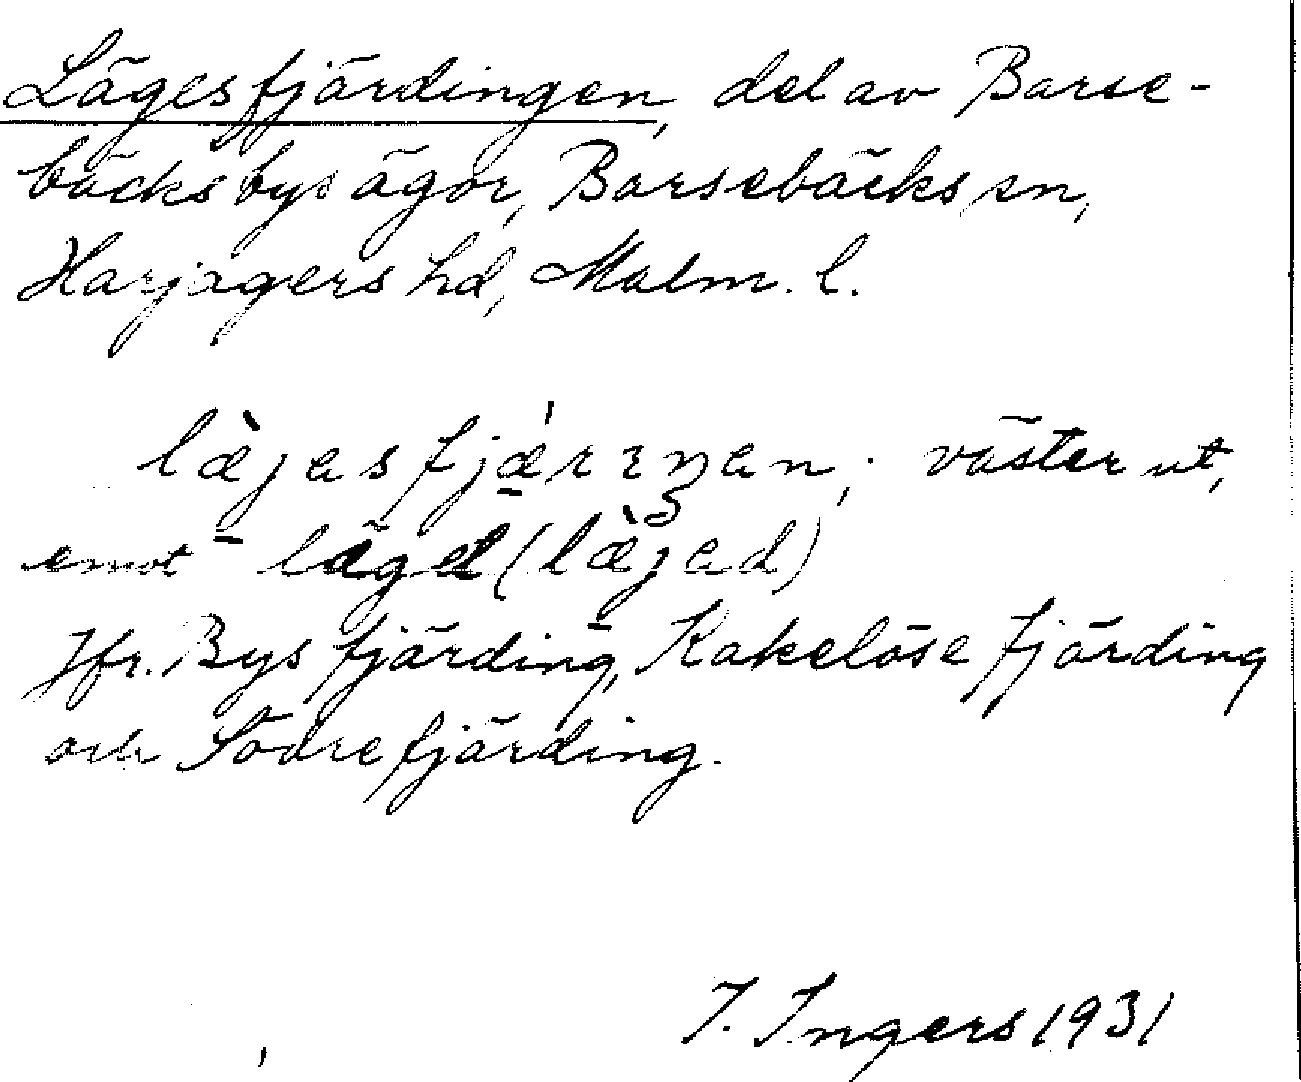 Lägesfjärdingen, del av Barse-
bäcks bys ägor, Barsebäcks sn,
Harjagers hd, Malm. l.
læ̀jasfjǽ̱rɪŋan; väster ut,
emot läget (læ̀jad)
Jfr. Bys fjärding, Kakelöse fjärding
och Södre fjärding.
I. Ingers 1931